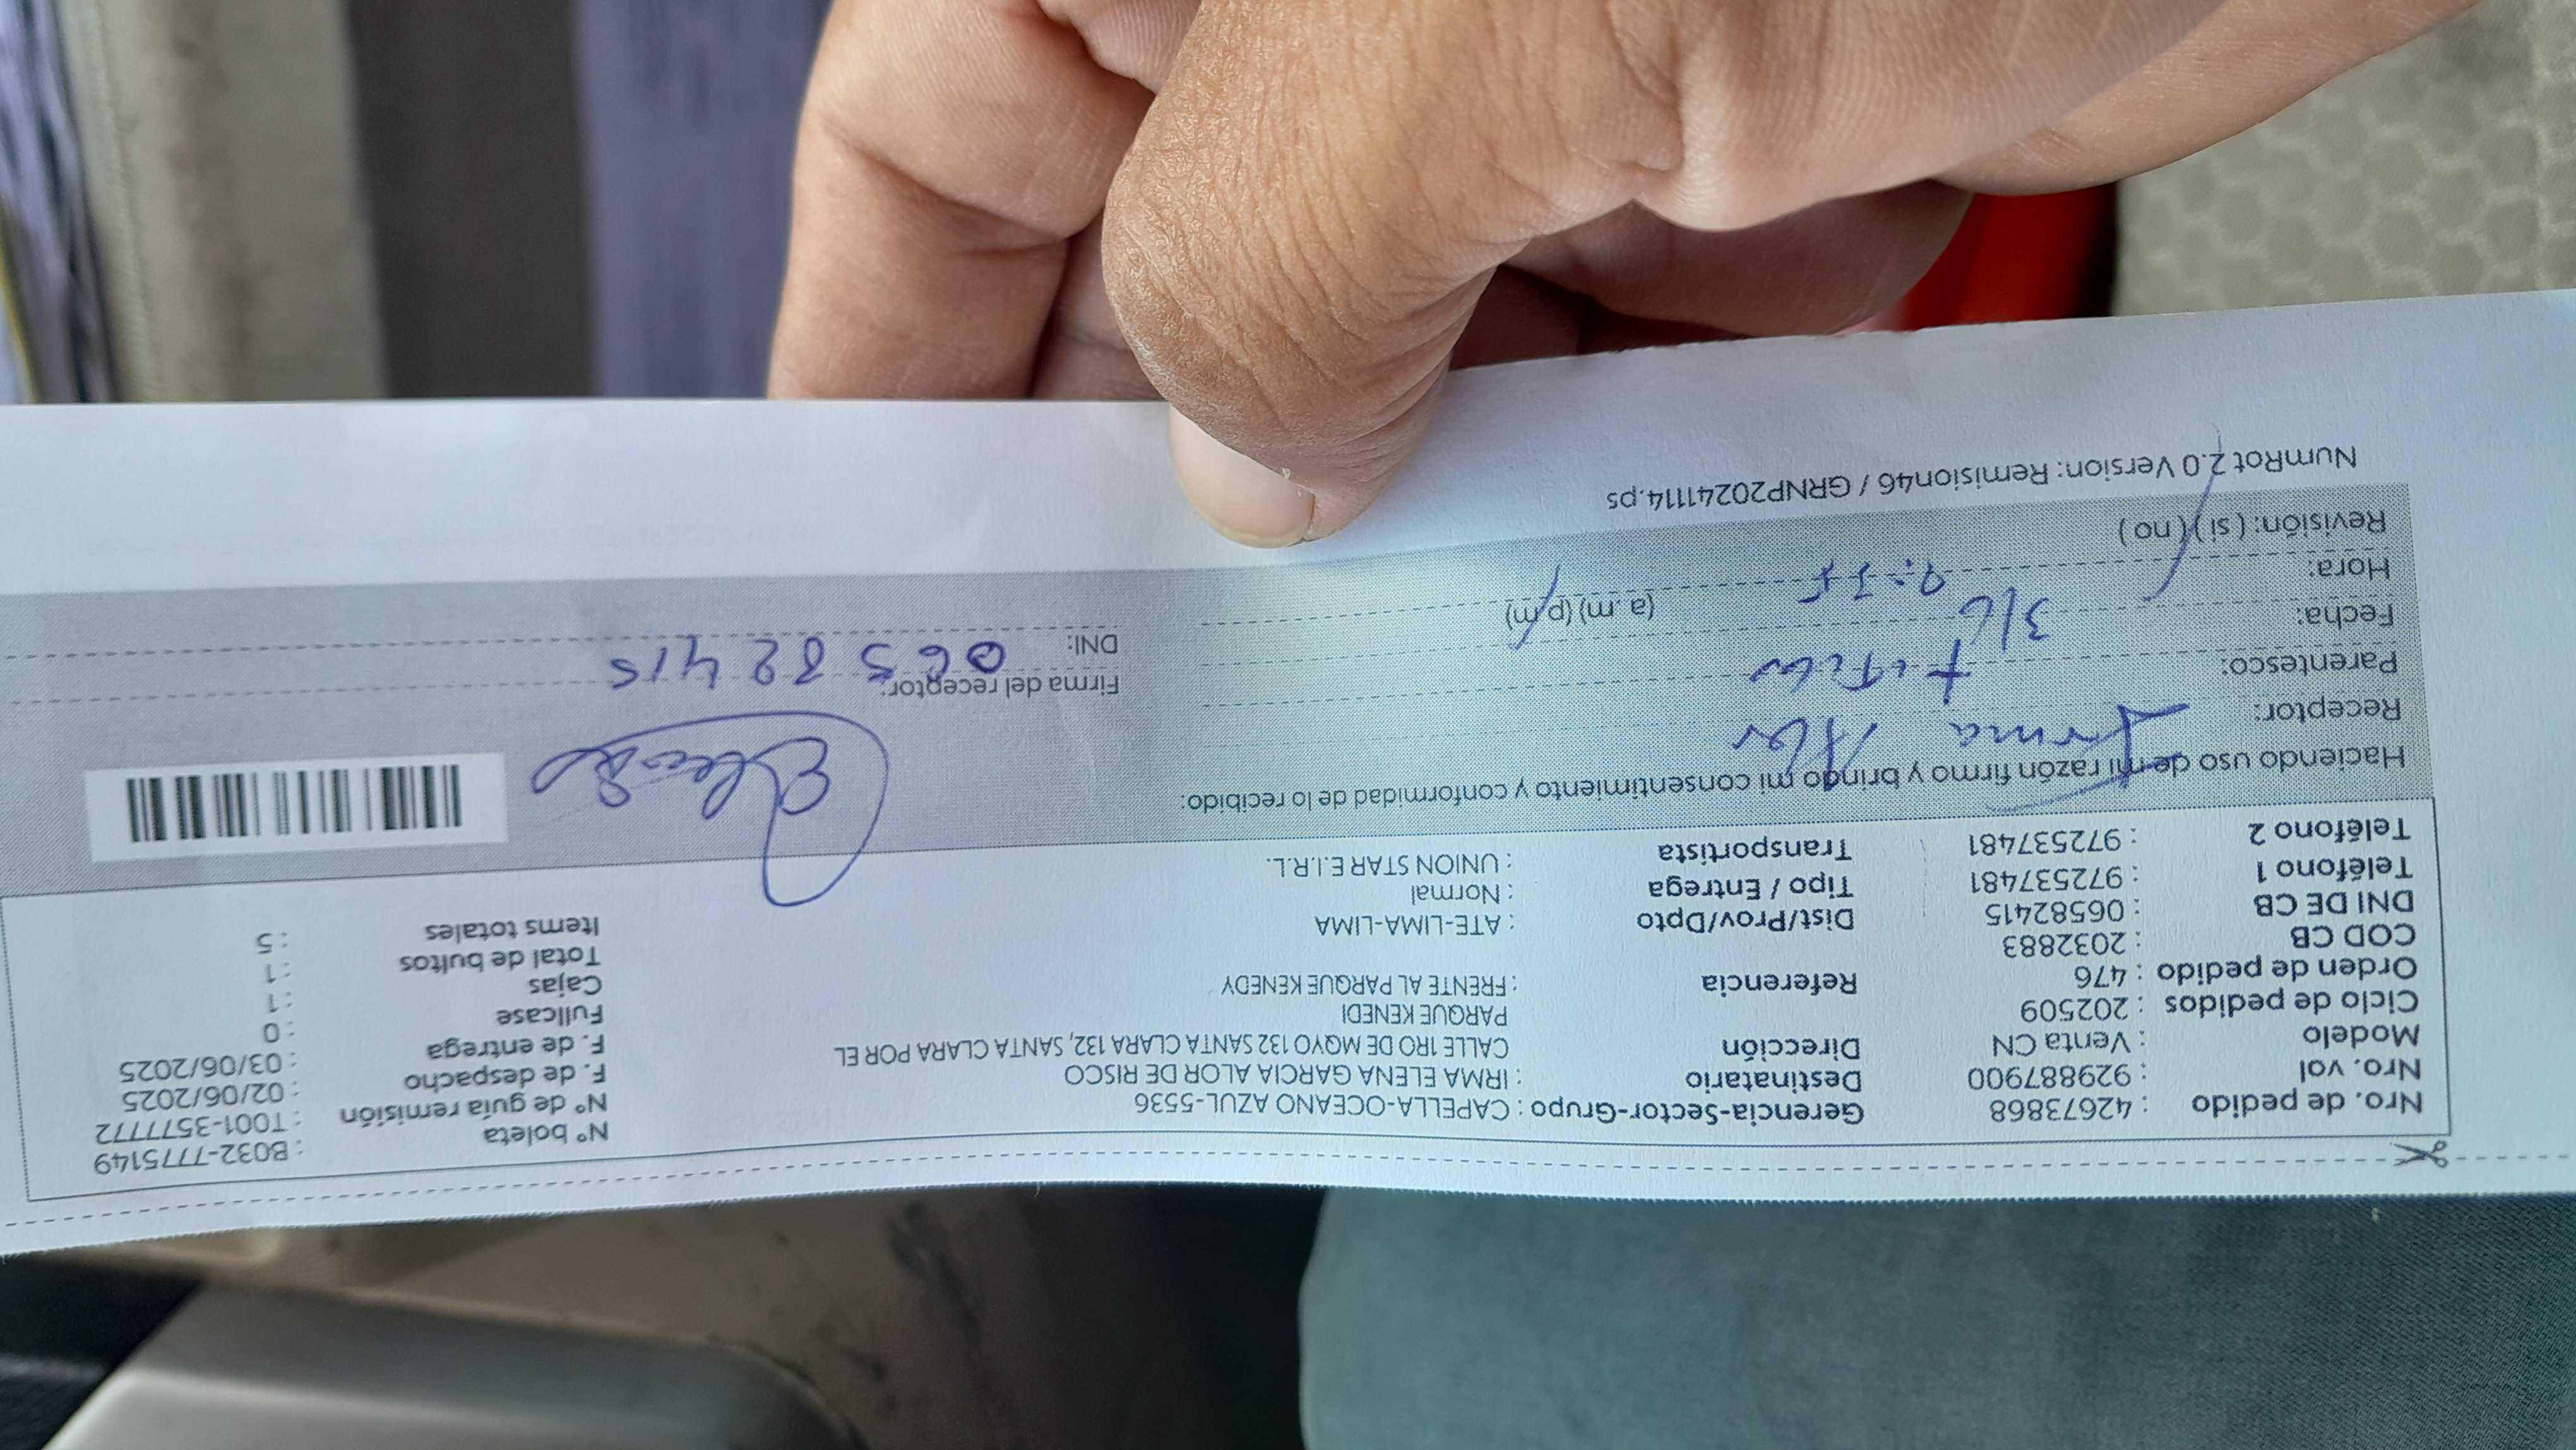 Nro. de pedido : 42673868
Nro. vol : 929887900
Modelo : Venta CN
Ciclo de pedidos : 202509
Orden de pedido : 476
COD CB : 2032883
DNI DE CB : 06582415
Teléfono 1 : 972537481
Teléfono 2 : 972537481
Gerencia-Sector-Grupo : CAPELLA-OCEANO AZUL-5536
Destinatario : IRMA ELENA GARCIA ALOR DE RISCO
Dirección CALLE 1RO DE MQYO 132 SANTA CLARA 132, SANTA CLARA POR EL
PARQUE KENEDI
Referencia : FRENTE AL PARQUE KENEDY
Dist/Prov/Dpto : ATE-LIMA-LIMA
Tipo / Entrega : Normal
Transportista : UNION STAR E.I.R.L.
Nº boleta : B032-7775149
Nº de guía remisión : T001-3577772
F. de despacho : 02/06/2025
F. de entrega : 03/06/2025
Fullcase : 0
Cajas : 1
Total de bultos : 1
Items totales : 5
Haciendo uso de mi razón firmo y brindo mi consentimiento y conformidad de lo recibido:
Receptor: Irma Alor
Parentesco: titular
Fecha: 3/6
Hora: (a.m) (p.m)
Revisión: ( si ) ( no )
Firma del receptor:
DNI: 06582415
NumRot 2.0 Version: Remision46 / GRNP20241114.ps